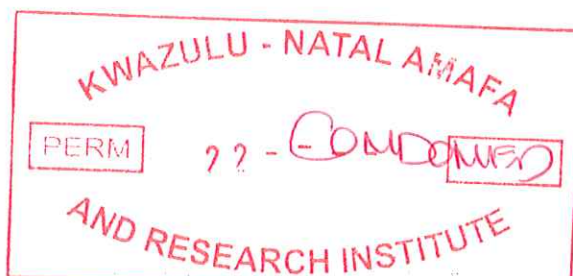 KWAZULU - NATAL AMAFA
PERM ?? - CONDONED
AND RESEARCH INSTITUTE